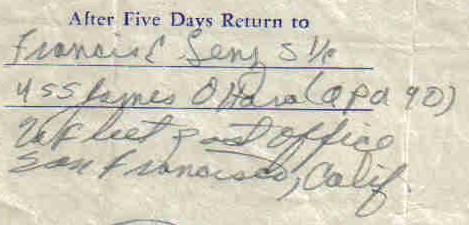 After Five Days Return to
Francis E Lenz S 1/c
USS James O Hara (apa 90)
℅ Fleet Post Office
San Francisco, Calif.